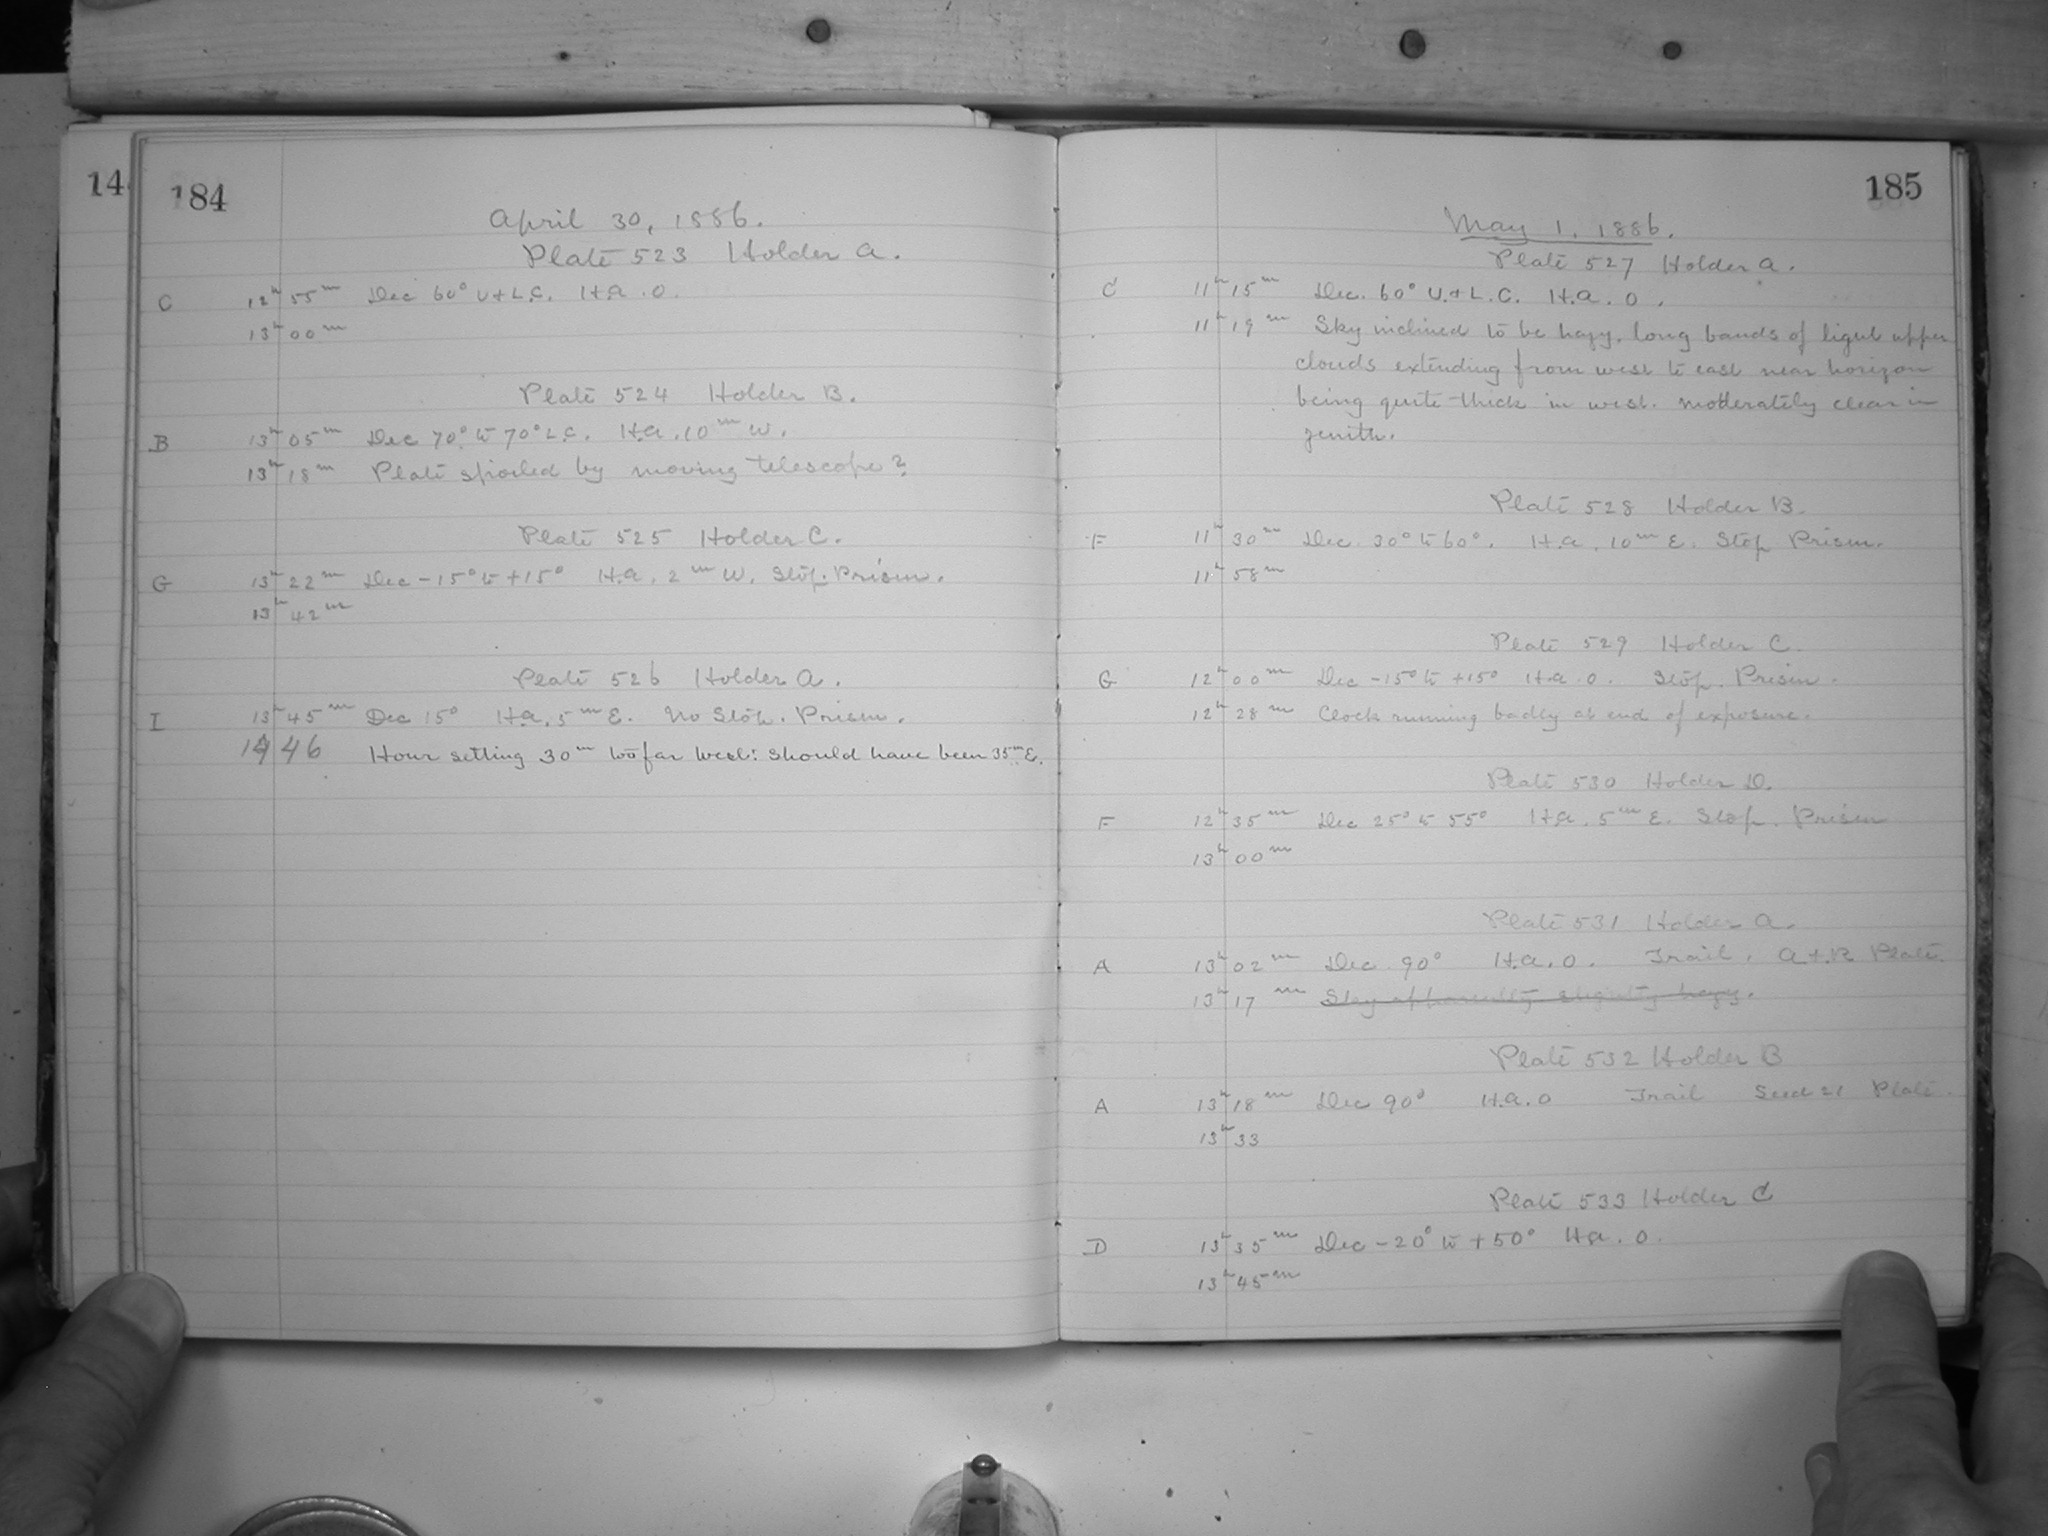 14
184
April 30, 1886.
Plate 523 Holder A.
C 12h 55m Dec 60° U+L.C. H.A. 0.
13h 00m
Plate 524 Holder B.
B 13h 05m Dec 70° to 70° L.C. H.A. 10m W.
13h 18m Plate spoiled by moving telescope?
Plate 525 Holder C.
G 13h 22m Dec -15° to +15° H.A. 2m W. Stop. Prism.
13h 42m
Plate 526 Holder A.
I 13h 45m Dec 15° H.A. 5m E. No Stop. Prism.
14 46 Hour setting 30m too far West: should have been 35m E.
185
May 1, 1886.
Plate 527 Holder A.
C 11h 15m Dec. 60° U.+L.C. H.A. 0.
11h 19m Sky inclined to be hazy, long bands of light upper
clouds extending from west to east near horizon
being quite thick in west. moderately clear in
zenith.
Plate 528 Holder B.
F 11h 30m Dec. 30° to 60°. H.A. 10m E. Stop Prism.
11h 58m
Plate 529 Holder C.
G 12h 00m Dec -15° to +15° H.A. 0. Stop. Prism.
12h 28m Clock running badly at end of exposure.
Plate 530 Holder D.
F 12h 35m Dec 25° to 55° H.A. 5m E. Stop. Prism
13h 00m
Plate 531 Holder A.
A 13h 02m Dec. 90° H.A. 0. Trail. A+R Plate.
13h 17m Sky apparently slightly hazy.
Plate 532 Holder B
A 13h 18m Dec 90° H.A. 0 Trail Seed 21 Plate.
13h 33
Plate 533 Holder C
D 13h 35m Dec -20° to +50° H.A. 0.
13h 45m